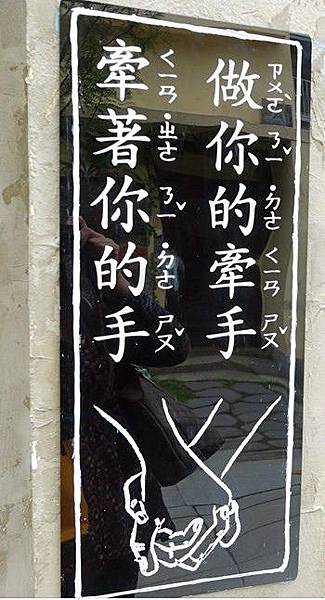 做你的牽手
ㄗㄨㄛˋ ㄋㄧˇ ˙ㄉㄜ ㄑㄧㄢ ㄕㄡˇ
牽著你的手
ㄑㄧㄢ ˙ㄓㄜ ㄋㄧˇ ˙ㄉㄜ ㄕㄡˇ